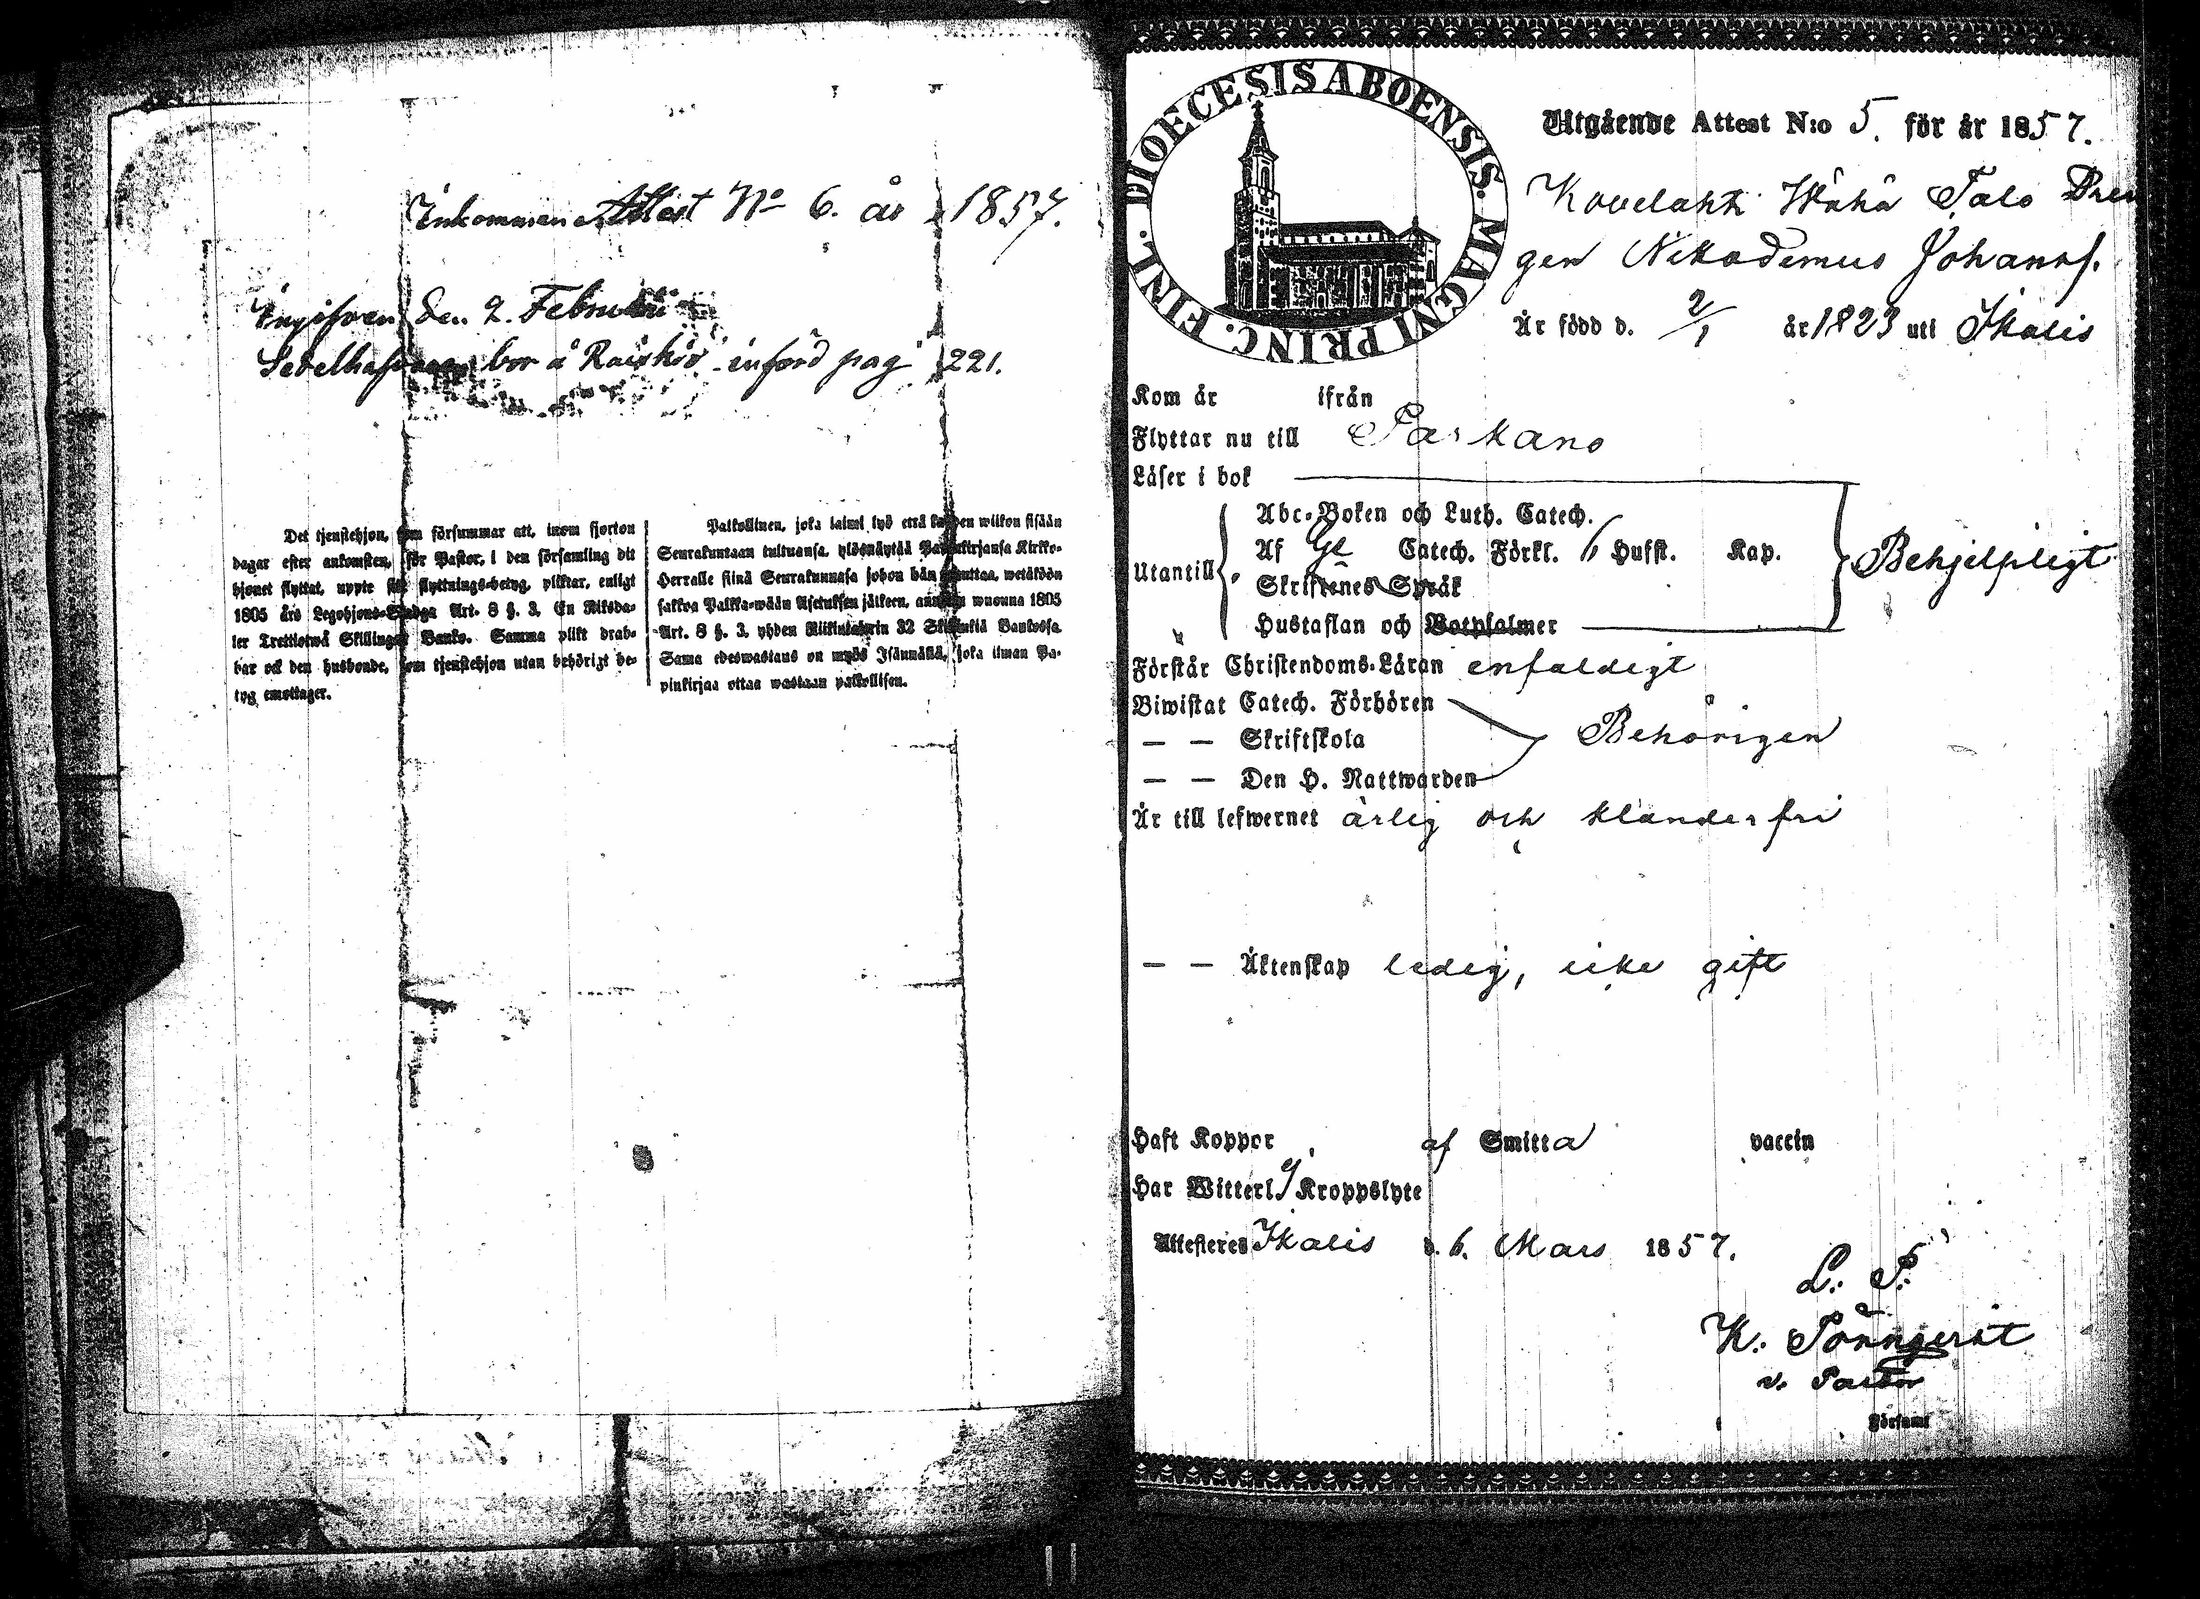 Inkommen Attest No 6. år 1857.
Ingifven den 2. Februari
Sedelhafvaren bor å Raiskiö införd pag 221.
Det tjenstehjon, som försummar att, inom fjorton
dagar efter ankomsten, för Pastor, i den församling dit
hjonet flyttat, uppte sitt flyttnings-betyg, pliktar, enligt
1805 års Legohjons-Stadga Art. 8 §. 3. En Riksda-
ler Trettiotwå Skillingar Banko. Samma plikt drab-
bar ock den husbonde, som tjenstehjon utan behörigt be-
tyg emottager.
Palkollinen, joka laimi lyö että kahden wiikon sisään
Seurakuntaan tultuansa, ylösnäyttää Papinkirjansa Kirkko-
Herralle siinä Seurakunnasa johon hän muuttaa, wetäköön
sakkoa Palkka-wään Asetuksen jälkeen, annettu wuonna 1805
Art. 8 §. 3. yhden Riikintalarin 32 Skillinkiä Bankossa.
Sama edeswastaus on myös Isännällä, joka ilman Pa-
pinkirjaa ottaa wastaan palkollisen.
DIOECESIS ABOENSIS. MAGNI PRINC. FINL.
Utgående Attest N:o 5. för år 1857.
Kovelahti Wähä Talo Dren
gen Nikodemus Johansf.
Är född d. 2/1 år 1823 uti Ikalis
Kom år ifrån
Flyttar nu till Parkano
Läser i bok
Abc-Boken och Luth. Catech.
Utantill Af Gl Catech. Förkl. Hufst. Kap. Behjelpligt
Skriftenes Språk
Hustaflan och Botpsalmer
Förstår Christendoms-Läran enfaldigt
Biwistat Catech. Förhören
— — Skriftskola Behörigen
— — Den H. Nattwarden
Är till lefwernet ärlig och klanderfri
— — Äktenskap ledig, icke gift
Haft Koppor af Smitta vaccin
Har Witterl. Kroppslyte
Attesteres Ikalis d. 6. Mars 1857.
L. P.
K.
v. Pastor
Församl